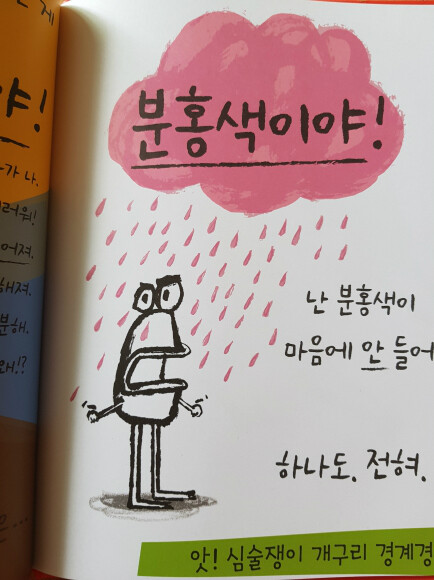 야!
가 나.
러워!
어져.
해져.
분해.
왜!?
분홍색이야!
난 분홍색이
마음에 안 들어
하나도. 전혀.
앗! 심술쟁이 개구리 경계경